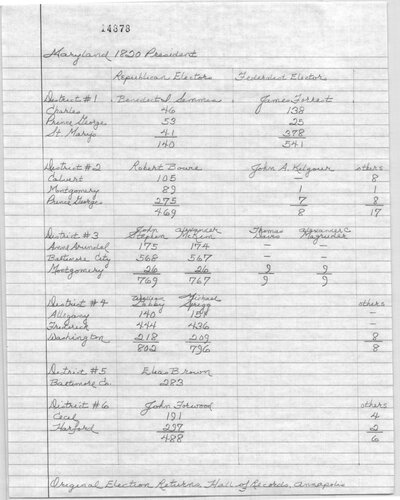 14878
Maryland 1820 President
Republican Electors Federalist Electors
District #1 Benedict I Semmes James Forrest
Charles 46 138
Prince George 53 25
St. Marys 41 378
140 541
District #2 Robert Bowie John A. Kilgour others
Calvert 105 — 8
Montgomery 89 1 1
Prince Georges 275 7 8
469 8 17
District #3 John Stephen Alexander McKim Thomas Davis Alexander C Magruder
Anne Arundel 175 174 — —
Baltimore City 568 567 — —
Montgomery 26 26 9 9
769 767 9 9
District #4 Michael Sprigg others
Allegany 140 151 —
Frederick 444 436 —
Washington 218 209 8
802 796 8
District #5 Elias Brown
Baltimore Co. 283
District #6 John Forwood others
Cecil 191 4
Harford 297 2
488 6
Original Election Returns, Hall of Records, Annapolis